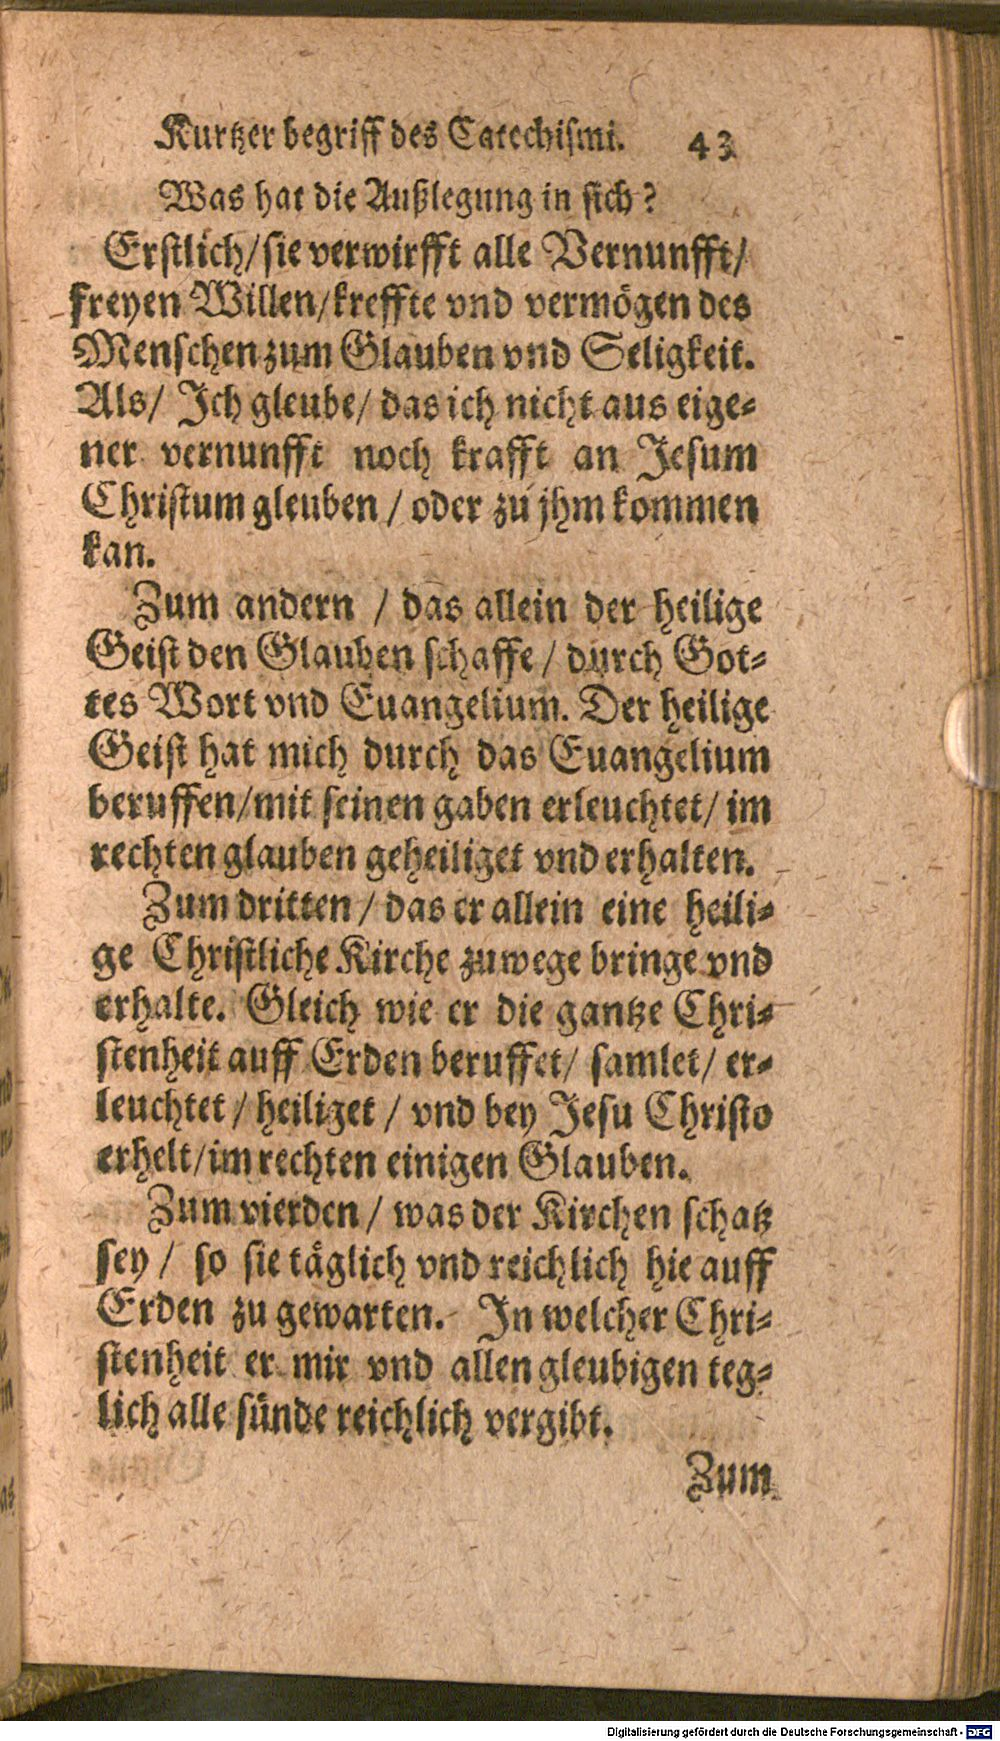 Kurtzer begriff des Catechismi. 43
Was hat die Außlegung in sich?
Erstlich/sie verwirfft alle Vernunfft/
freyen Willen/kreffte vnd vermögen des
Menschen zum Glauben vnd Seligkeit.
Als/ Ich gleube/ das ich nicht aus eige⸗
ner vernunfft noch krafft an Jesum
Christum gleuben / oder zu jhm kommen
kan.
Zum andern / das allein der heilige
Geist den Glauben schaffe / durch Got⸗
tes Wort vnd Euangelium. Der heilige
Geist hat mich durch das Euangelium
beruffen/mit seinen gaben erleuchtet/ im
rechten glauben geheiliget vnd erhalten.
Zum dritten / das er allein eine heili⸗
ge Christliche Kirche zuwege bringe vnd
erhalte. Gleich wie er die gantze Chri⸗
stenheit auff Erden beruffet/ samlet/ er⸗
leuchtet / heiliget / vnd bey Jesu Christo
erhelt/im rechten einigen Glauben.
Zum vierden / was der Kirchen schatz
sey / so sie täglich vnd reichlich hie auff
Erden zu gewarten. In welcher Chri⸗
stenheit er mir vnd allen gleubigen teg⸗
lich alle sünde reichlich vergibt.
Zum
Digitalisierung gefördert durch die Deutsche Forschungsgemeinschaft - DFG